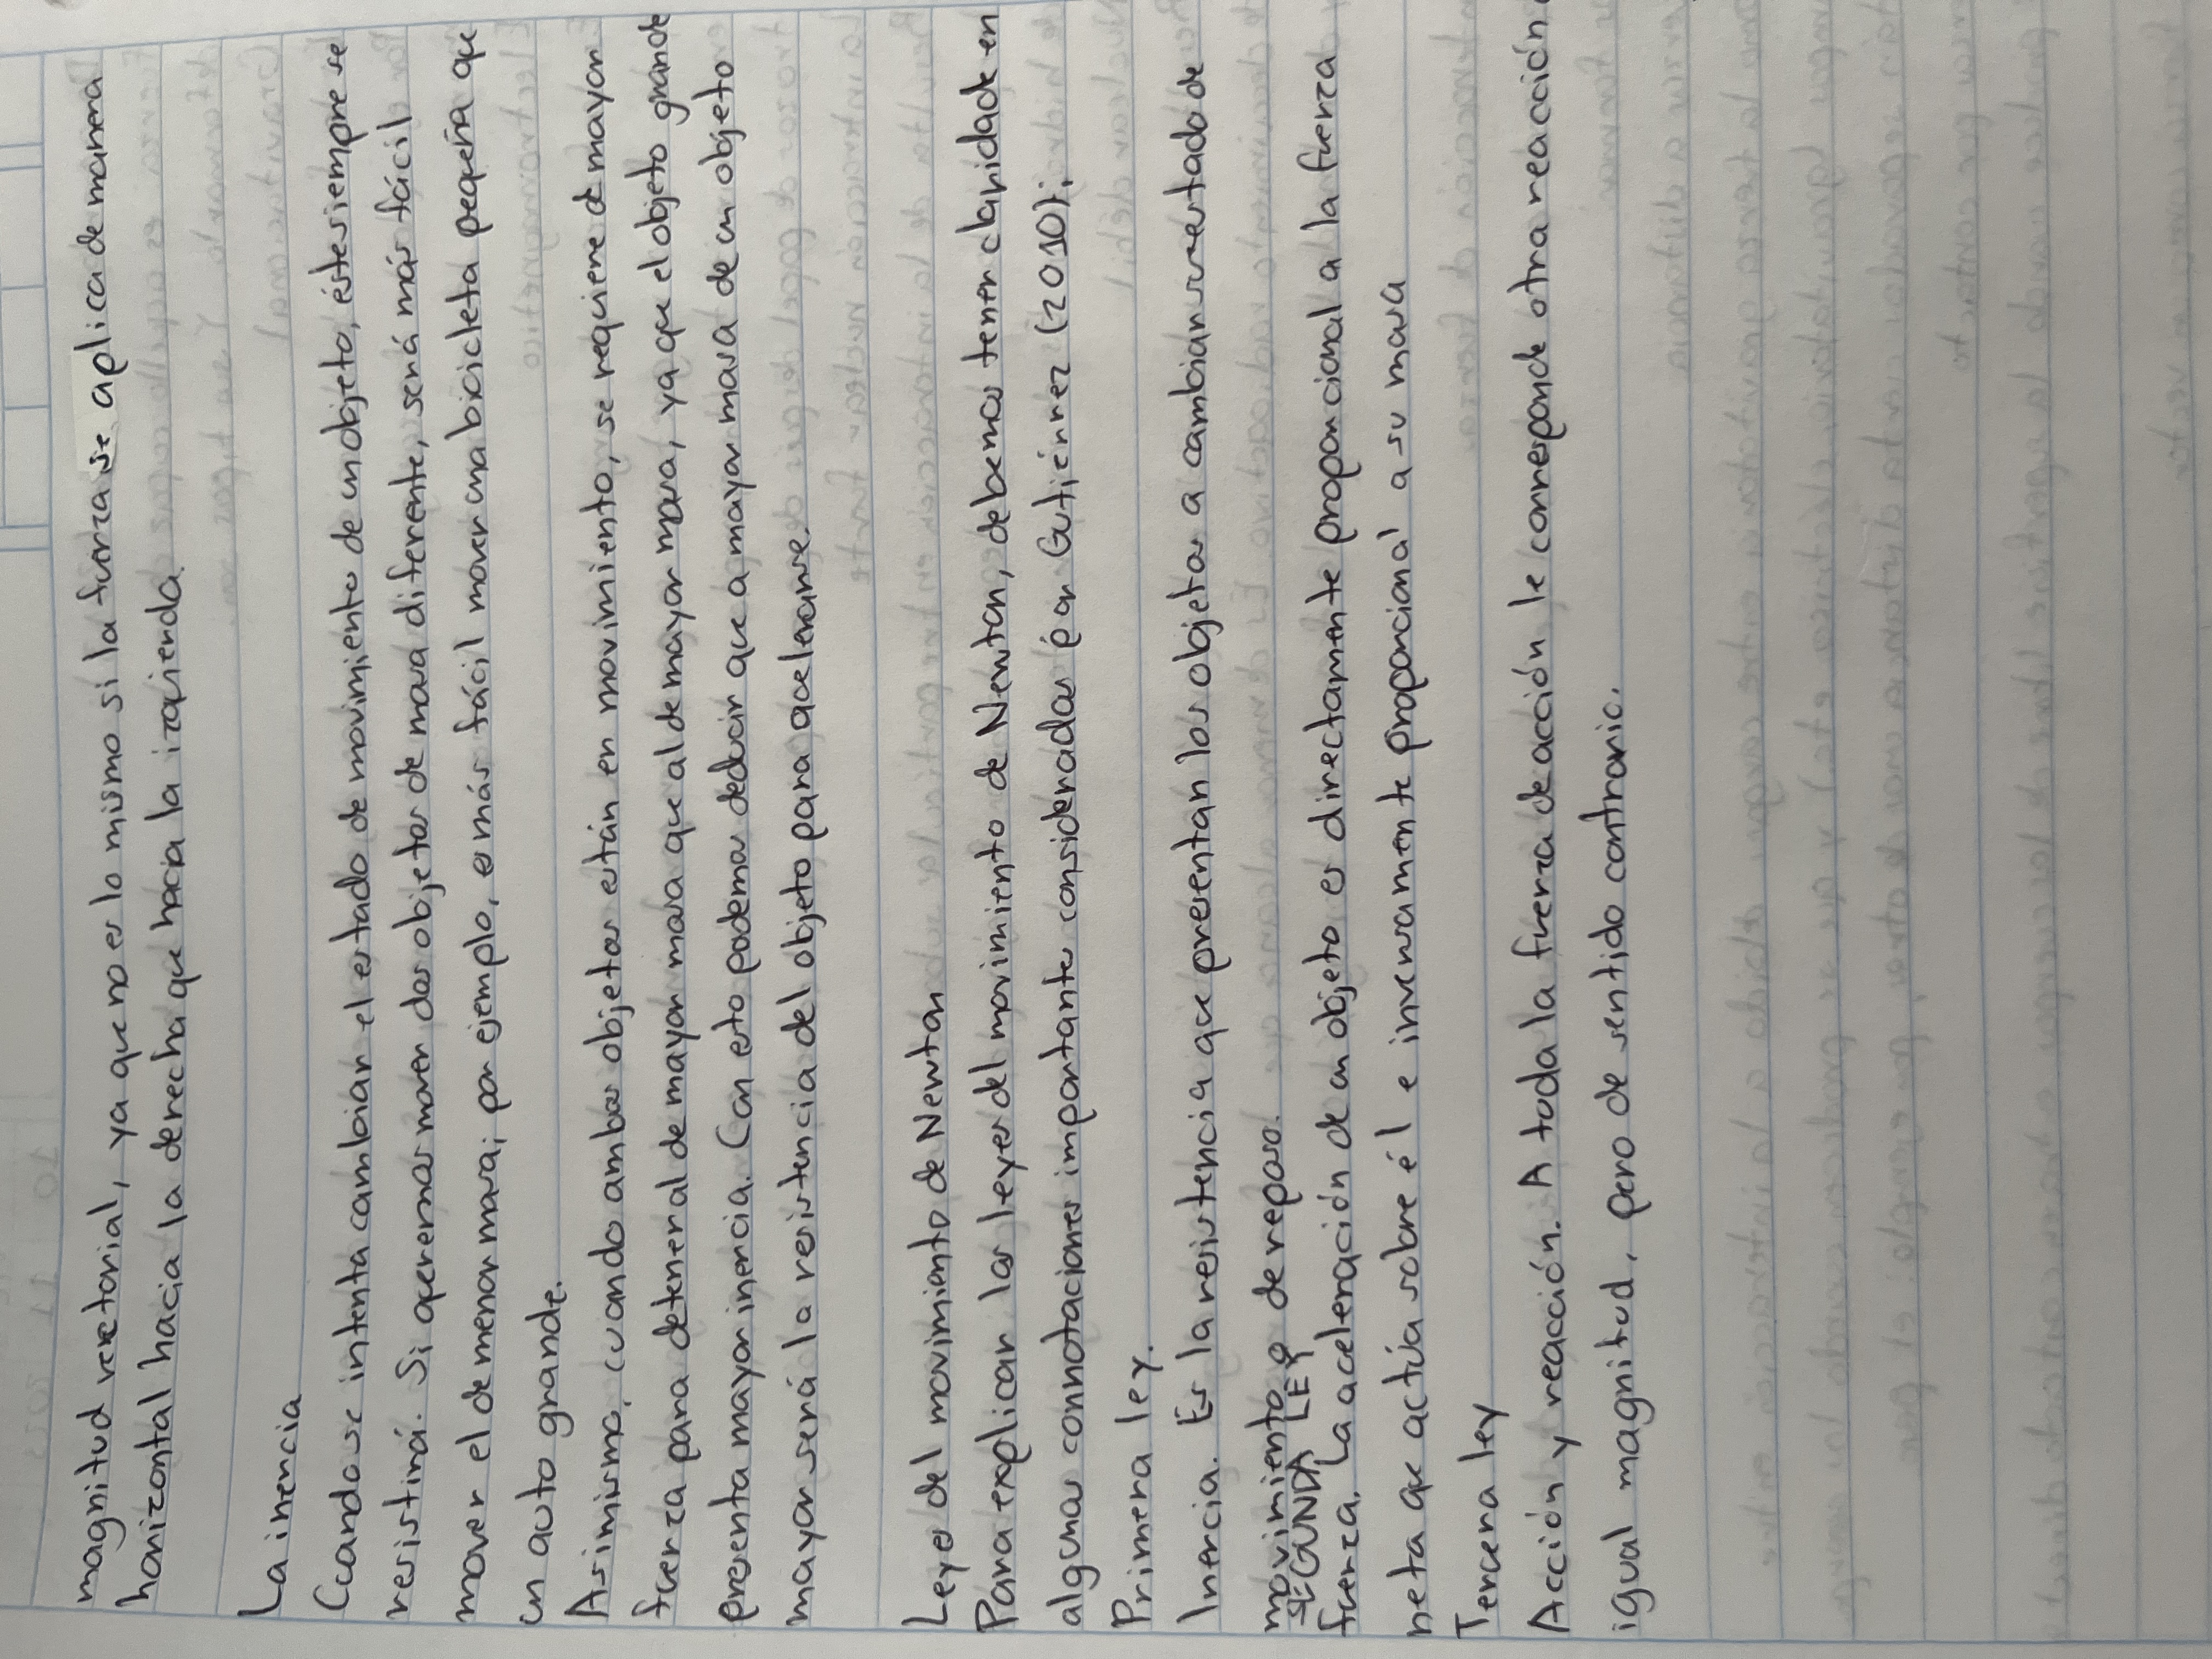 magnitud vectorial, ya que no es lo mismo si la fuerza se aplica de manera
horizontal hacia la derecha que hacia la izquierda.
La inercia
Cuando se intenta cambiar el estado de movimiento de un objeto, éste siempre se
resistirá. Si queremos mover dos objetos de masa diferente, será más fácil
mover el de menor masa; por ejemplo, es más fácil mover una bicicleta pequeña que
un auto grande.
Asimismo, cuando ambos objetos están en movimiento, se requiere de mayor
fuerza para detener al de mayor masa que al de mayor masa, ya que el objeto grande
presenta mayor inercia. Con esto podemos deducir que a mayor masa de un objeto
mayor será la resistencia del objeto para acelerarse.
Leyes del movimiento de Newton
Para explicar las leyes del movimiento de Newton, debemos tener claridade en
algunas connotaciones importante consideradas por Gutiérrez (2010);
Primera ley.
Inercia. Es la resistencia que presentan los objetos a cambiar su estado de
movimiento o de reposo.
SEGUNDA LEY
fuerza. La aceleración de un objeto es directamente proporcional a la fuerza
neta que actúa sobre él e inversamente proporcional a su masa
Tercera ley
Acción y reacción. A toda la fuerza de acción le corresponde otra reacción
igual magnitud, pero de sentido contrario.